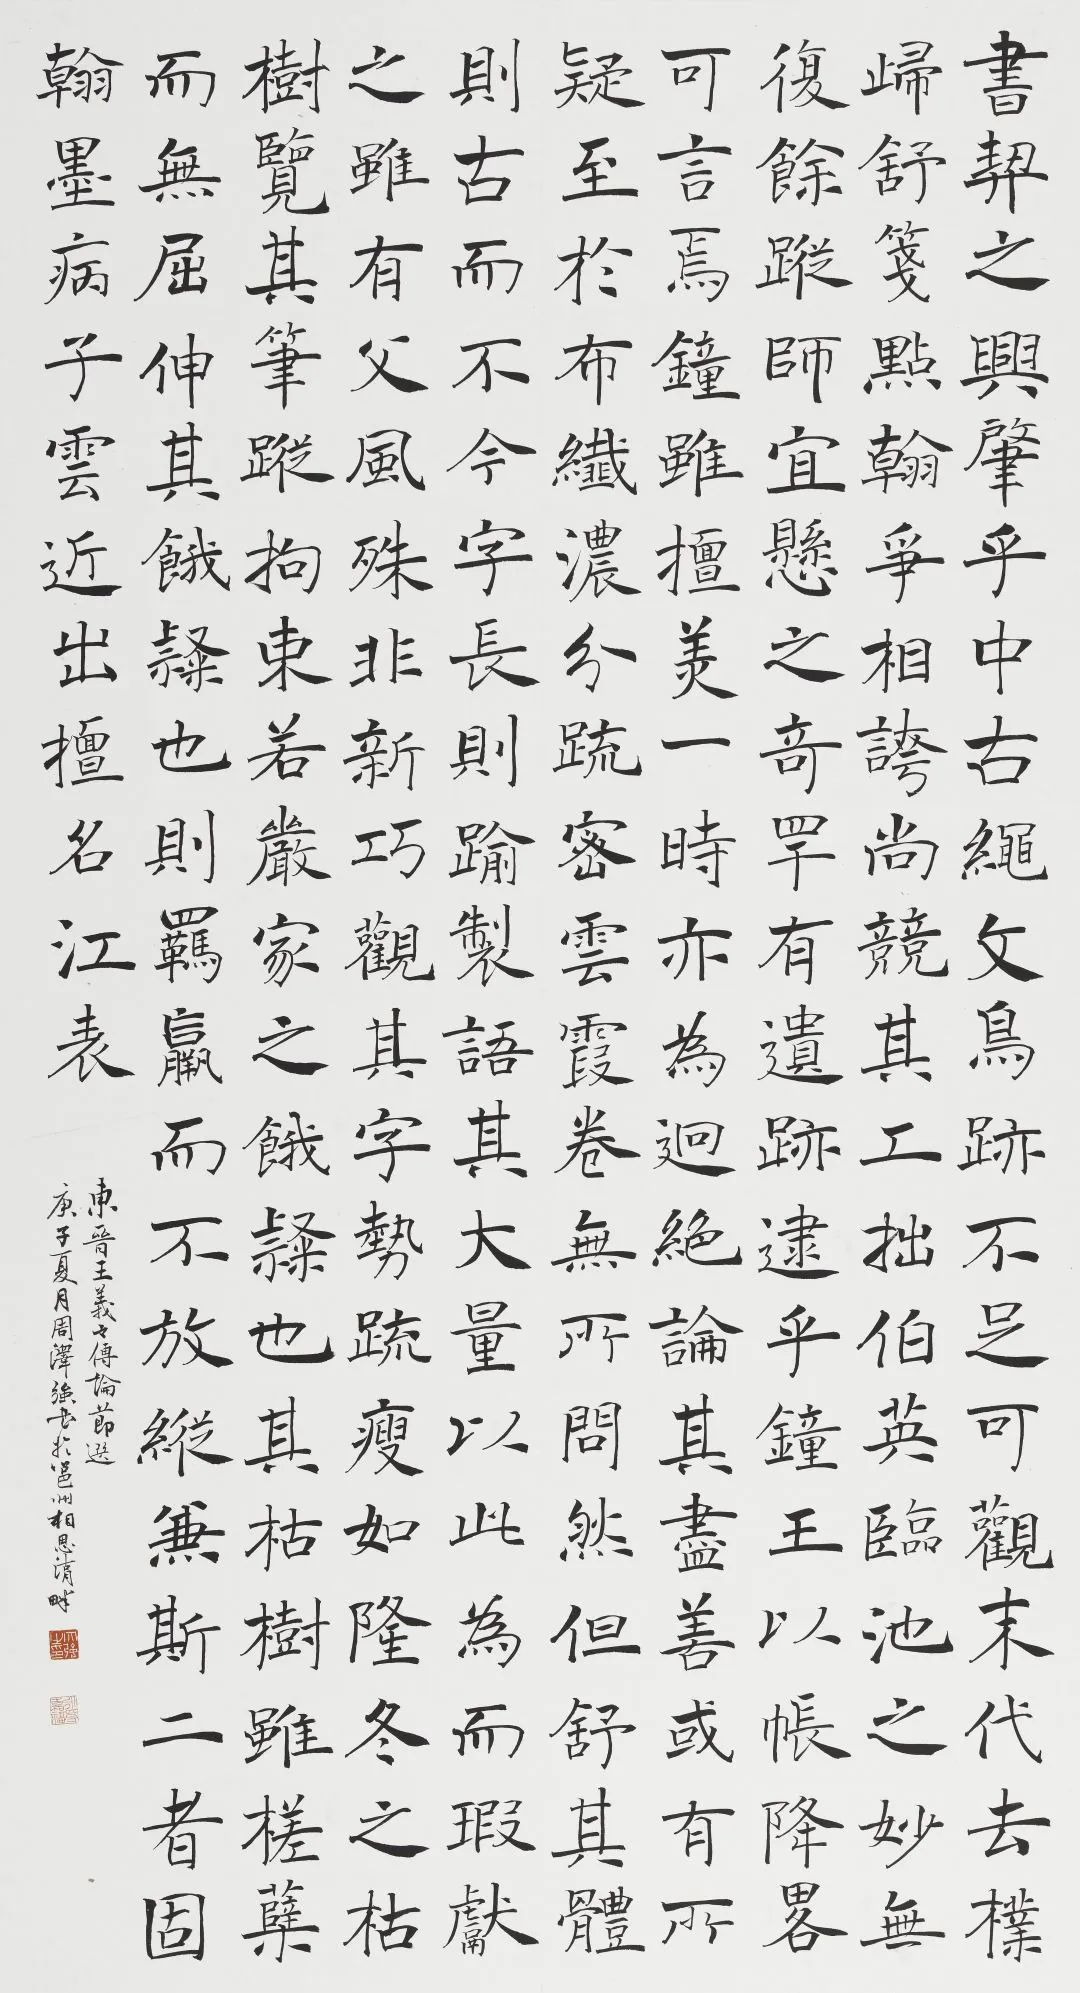 書契之興肇乎中古繩文鳥跡不足可觀末代去樸
歸舒箋點翰爭相誇尚競其工拙伯英臨池之妙無
復餘蹤師宜懸之奇罕有遺跡逮乎鐘王以帳降畧
可言焉鐘雖擅美一時亦為迥絕論其盡善或有所
疑至於布纖濃分疏密雲霞卷無所問然但舒其體
則古而不今字長則踰製語其大量以此為而瑕獻
之雖有父風殊非新巧觀其字勢疏瘦如隆冬之枯
樹覽其筆蹤拘束若嚴家之餓隸也其枯樹雖槎蘖
而無屈伸其餓隸也則羈羸而不放縱兼斯二者固
翰墨病子雲近出擅名江表
東晉王羲之傳論節選
庚子夏月周澤強書於邕州相思湖畔